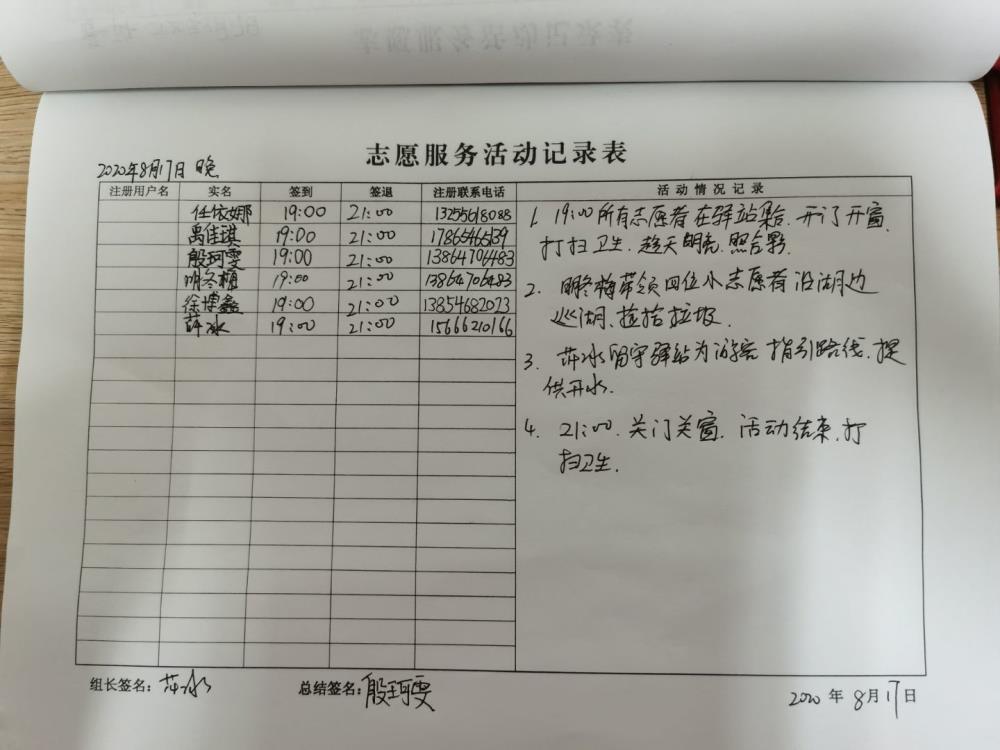 志愿服务活动记录表
2020年8月17日 晚
注册用户名 实名 签到 签退 注册联系电话 活动情况记录
任依娜 19:00 21:00 13255618088
禹佳琪 19:00 21:00 17865465139
殷珂雯 19:00 21:00 13864706483
明冬梅 19:00 21:00 13864706483
徐博鑫 19:00 21:00 13854682023
薛冰 19:00 21:00 15666210166
1. 19:00所有志愿者在驿站集合.开门开窗.
打扫卫生.趁天明亮.照合影.
2. 明冬梅带领四位小志愿者沿湖边
巡湖、捡拾垃圾.
3. 薛冰留守驿站为游客指引路线.提
供开水.
4. 21:00.关门关窗.活动结束.打
扫卫生.
组长签名:薛冰 总结签名:殷珂雯 2020年8月17日